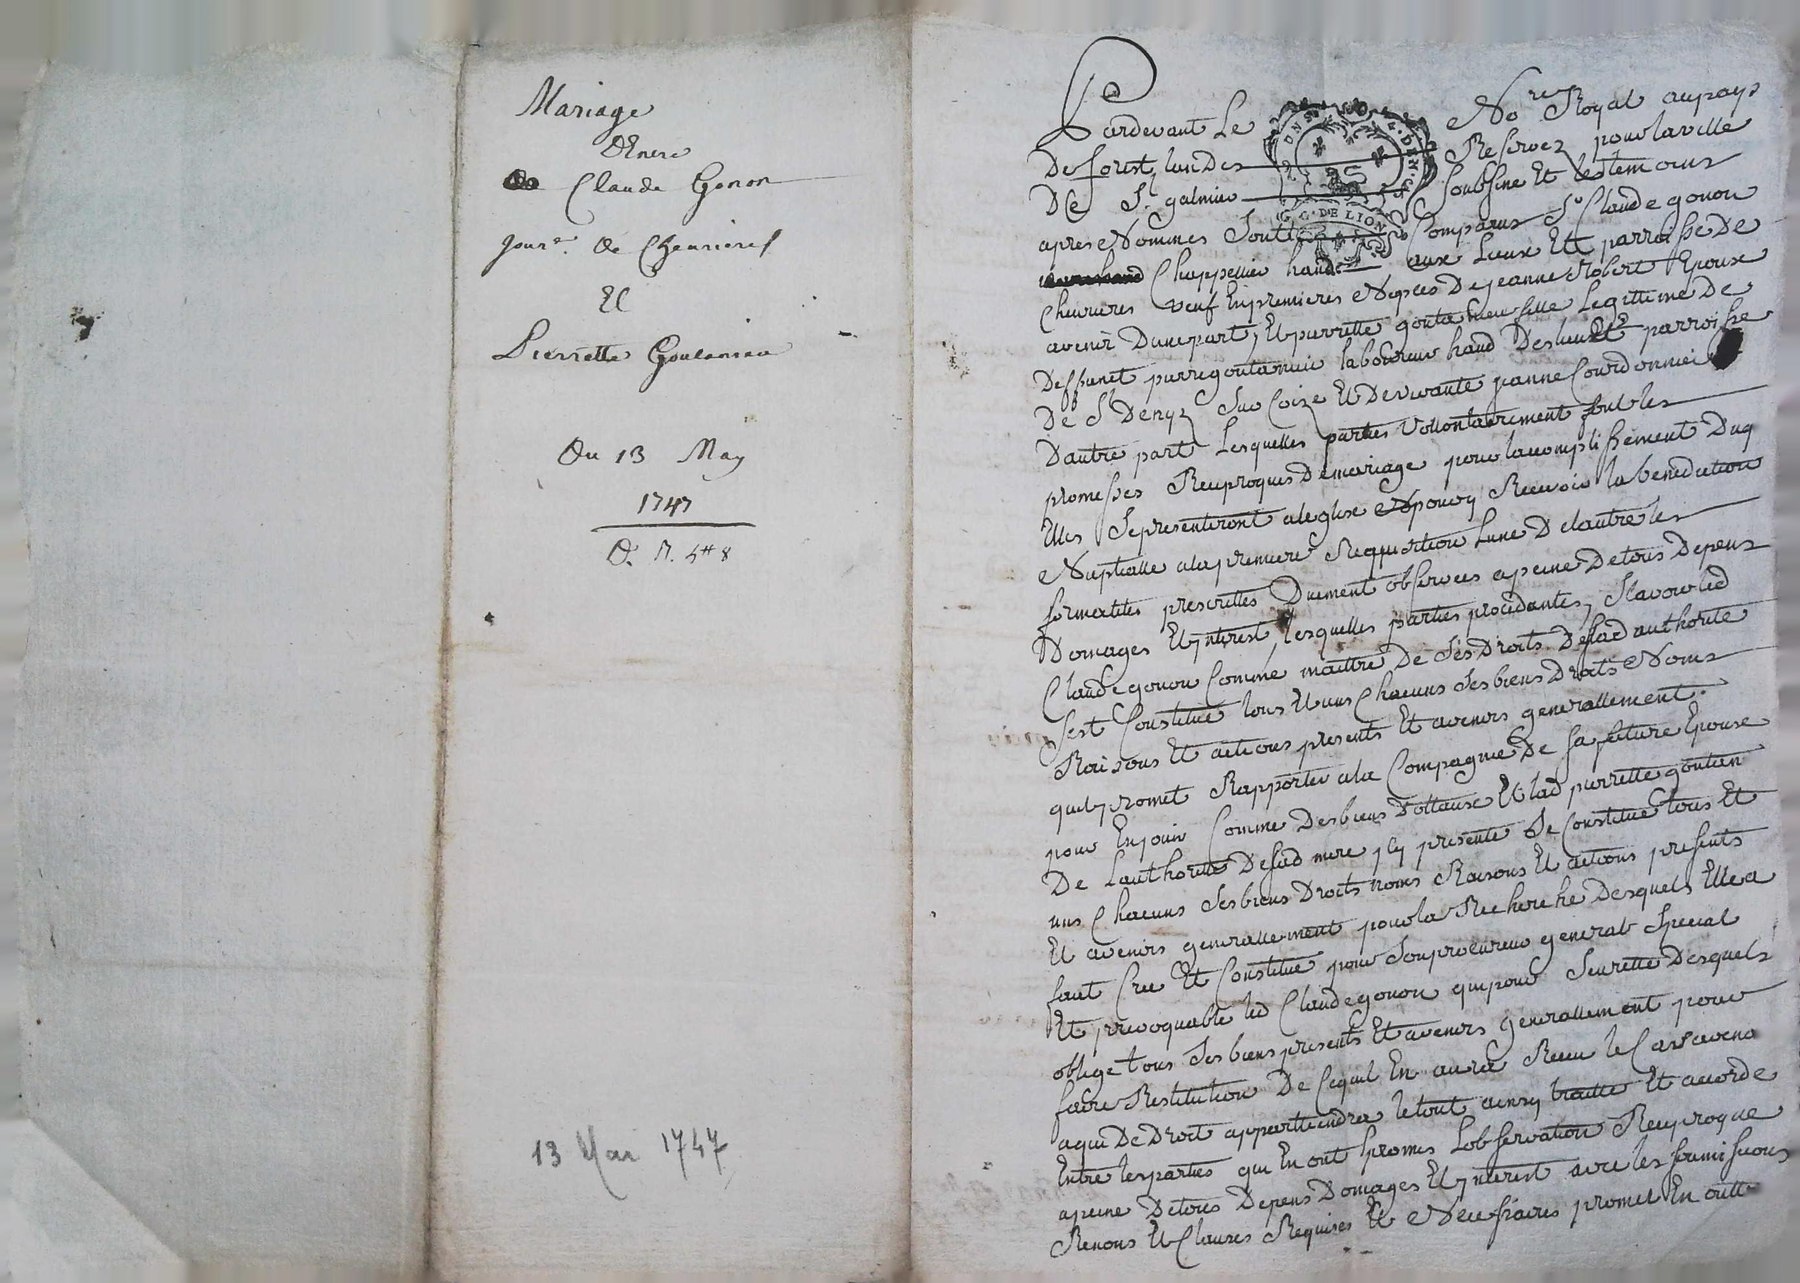 Mariage
Entre
Claude Gonon
Jour.r de Chevrieres
Et
Pierrette Goutanieu
Du 13 May
1747
D. R. 4# 8
13 Mai 1747
Pardevant Le No.re Royal au pays
De forest lun Des Reservez pour la ville
De St. galmier Soubsine Et les temoins
apres Nommes Sont Comparus Sr. Claude gonon
Chappellier habd. aux Lieux Et parroisse De
Chevrieres veuf En premieres Nopces De jeanne Robert Epoux
avenir Dune part, Et pierrette goutanieu fille Legittime De
Deffunct pierre goutanieu laboureur habd Des lieu Et parroisse
De St Denyz Suc Coize Et De vivante jeanne Courdonnier
Dautre part Lesquelles parties Vollontairement soubs les
promesses Reciproques De mariage pour lacomplissement Duq
Elles Se presenteront a leglise pour y Recevoir la benediction
Nuptialle a la premiere Requisition Lune De lautre les
formalités prescrittes Duement observées a peine De tous Depens
Domages Et interest, Lesquelles parties procedantes, Scavoir led
Claude gonon Comme maittre De Ses Droits De sad authorité
Sest Constitué tous Et uns Chacuns Ses biens Droits Noms
Raisons Et actions presents Et avenirs generallement.
quil promet Rapporter a la Compagnie De sa future Epouse
pour En jouir Comme Des biens Dottaux Et lad pierrette goutanieu
De Lauthorité De sad mere icy presente Se Constitue tous Et
uns Chacuns Ses biens Droits noms Raisons Et actions presents
Et avenirs generallement pour la Recherche Desquels Elle a
fait Cree Et Constitué pour Son procureur general Special
Et irrevoquable led Claude gonon qui pour Seurette Desquels
oblige tous Ses biens presents Et avenirs generallement pour
faire Restitution De Cequil En aura Receu le Cas avenant
a qui De Droit appartiendra le tout ainsy traitté Et accordé
Entre les parties qui En ont promis Lobservation Reciproque
a peine De tous Depens Domages Et interest avec les soumissions
Renons Et Clauses Requises Et Necessaires promet En outre
G. G. DE LION